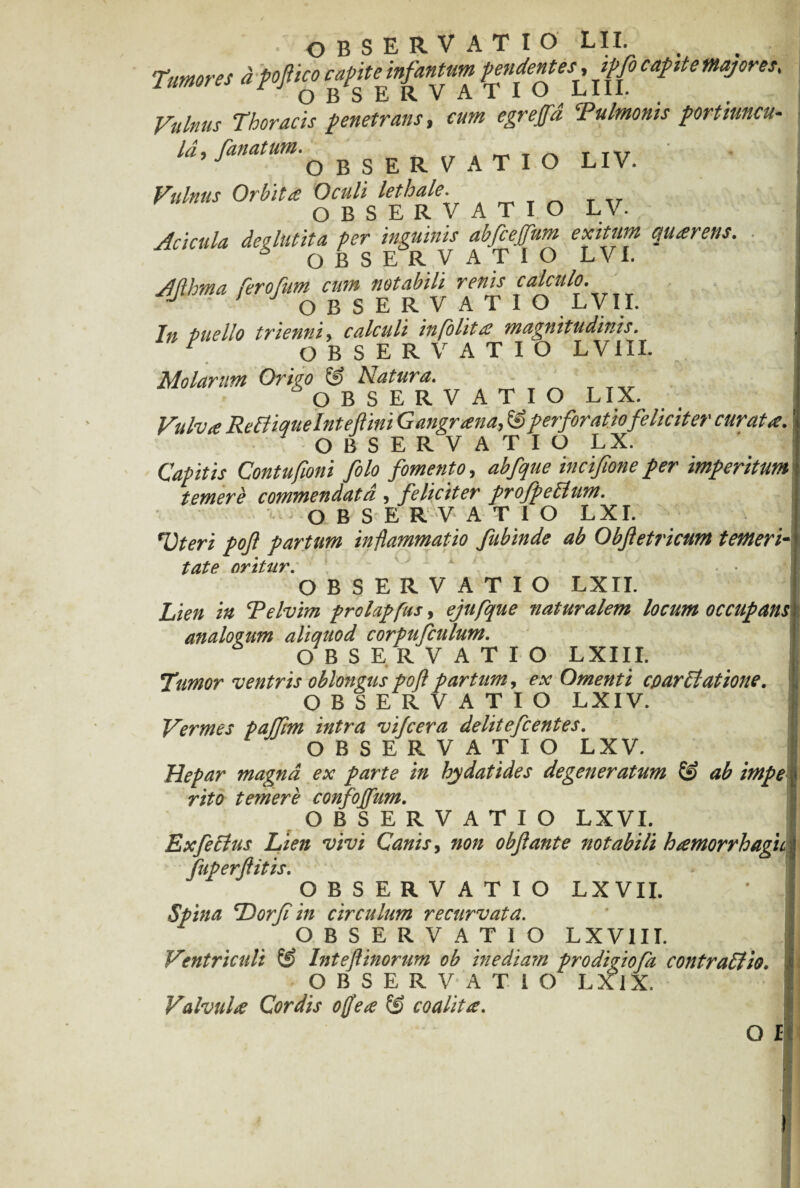 OBSERVATIO LII.
Tumores à poſtico capite infantum pendentes, ipſo capite majores.
OBSERVATIO LIII.
Vulnus Thoracis penetrans, cum egreſſâ Pulmonis portiuncu-
lâ, ſanatum.
OBSERVATIO LIV.
Vulnus Orbitæ Oculi lethale.
OBSERVATIO LV.
Acicula deglutita per inguinis abſceſſum exitum quærens.
OBSERVATIO LVI.
Aſthma ſeroſum cum notabili renis calculo.
OBSERVATIO LVII.
In puello trienni, calculi inſolitæ magnitudinis.
OBSERVATIO LVIII.
Molarum Origo & Natura.
OBSERVATIO LIX.
Vulvæ Rectique Inteſtini Gangræna, & perforatio feliciter curatæ.
OBSERVATIO LX.
Capitis Contuſioni ſolo fomento, abſque inciſione per imperitum
temerè commendatâ, feliciter proſpectum.
OBSERVATIO LXI.
Uteri poſt partum inflammatio ſubinde ab Obſtetricum temeri-
tate oritur.
OBSERVATIO LXII.
Lien in Pelvim prolapſus, ejuſque naturalem locum occupans
analogum aliquod corpuſculum.
OBSERVATIO LXIII.
Tumor ventris oblongus poſt partum, ex Omenti coarctatione.
OBSERVATIO LXIV.
Vermes paſſim intra viſcera deliteſcentes.
OBSERVATIO LXV.
Hepar magnâ ex parte in hydatides degeneratum & ab impe
rito temerè confoſſum.
OBSERVATIO LXVI.
Exſectus Lien vivi Canis, non obſtante notabili hæmorrhagiâ
ſuperſtitis.
OBSERVATIO LXVII.
Spina Dorſi in circulum recurvata.
OBSERVATIO LXVIII.
Ventriculi & Inteſtinorum ob inediam prodigioſa contractio.
OBSERVATIO LXIX.
Valvulæ Cordis oſſeæ & coalitæ.